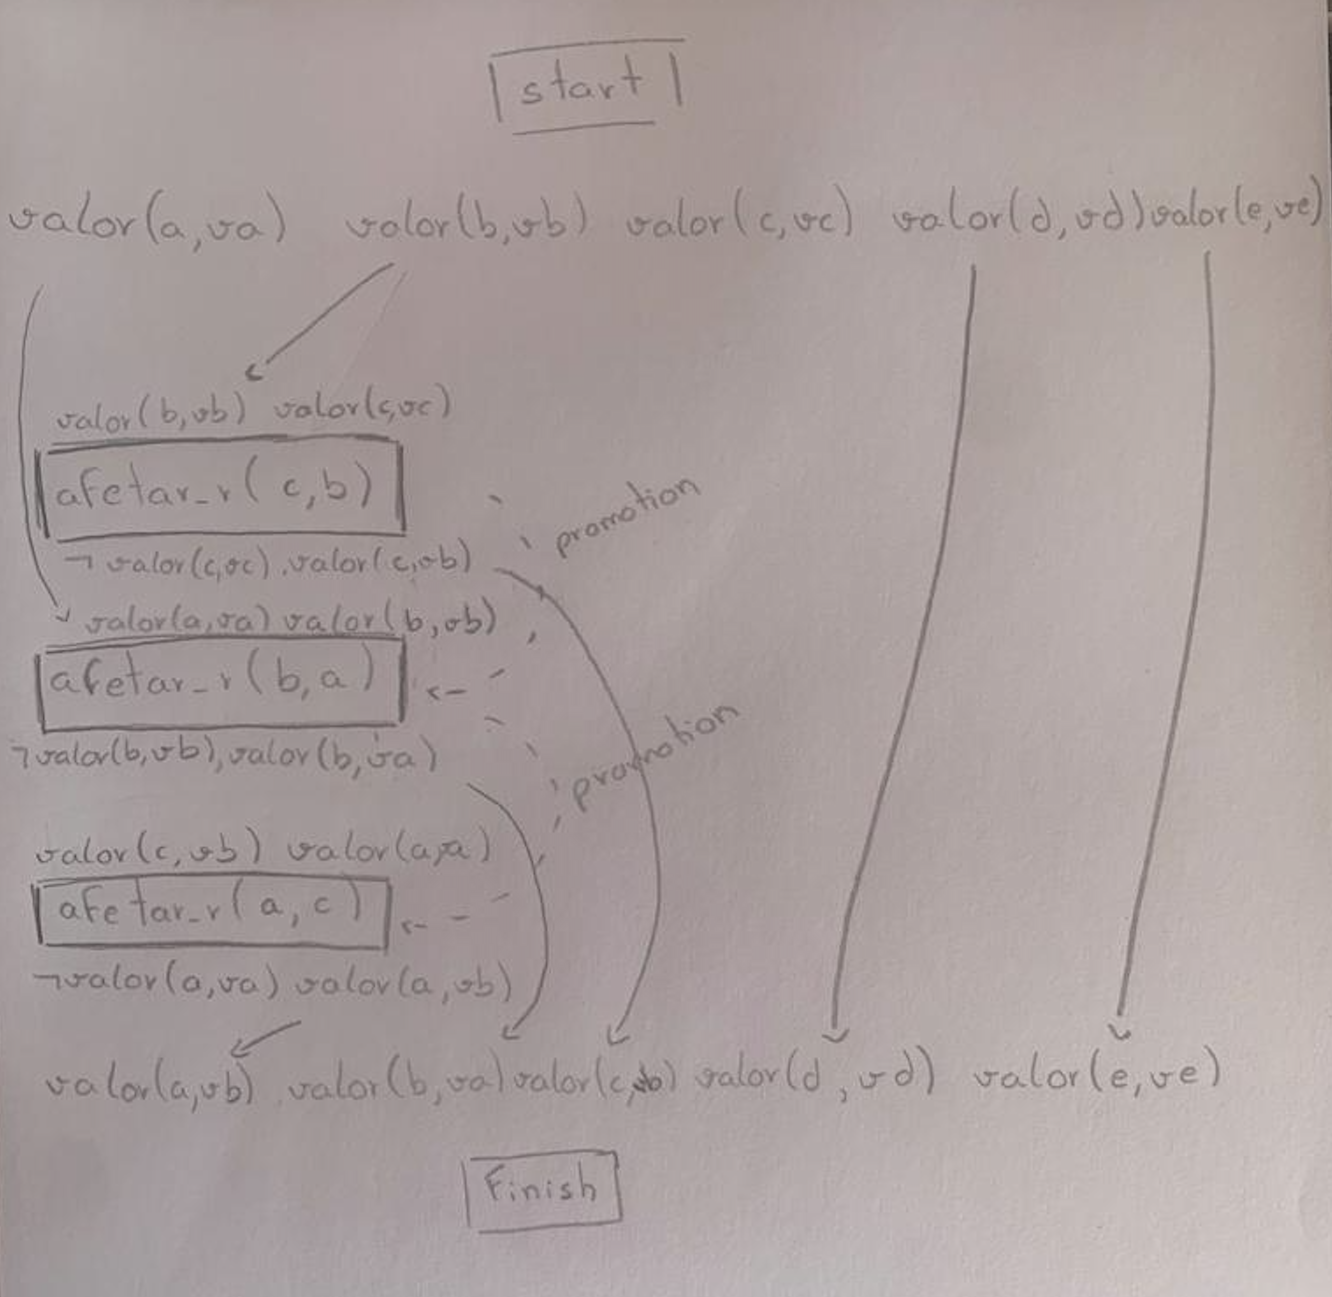 start
valor(a,va) valor(b,vb) valor(c,vc) valor(d,vd) valor(e,ve)
valor(b,vb) valor(c,vc)
afetar_r(c,b)
promotion
¬valor(c,vc),valor(c,vb)
valor(a,va) valor(b,vb)
afetar_r(b,a)
¬valor(b,vb),valor(b,va)
promotion
valor(c,vb) valor(a,a)
afetar_r(a,c)
¬valor(a,va) valor(a,vb)
valor(a,vb) valor(b,va) valor(c,vb) valor(d,vd) valor(e,ve)
Finish